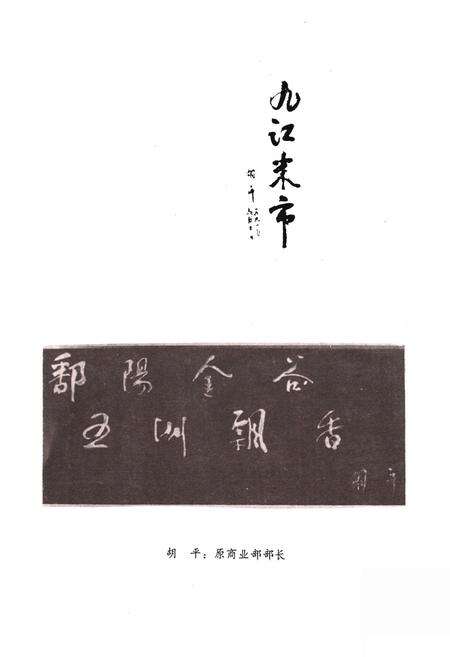 九江米市
胡平
鄱陽金谷
五洲飄香
胡平
胡　平：原商业部部长